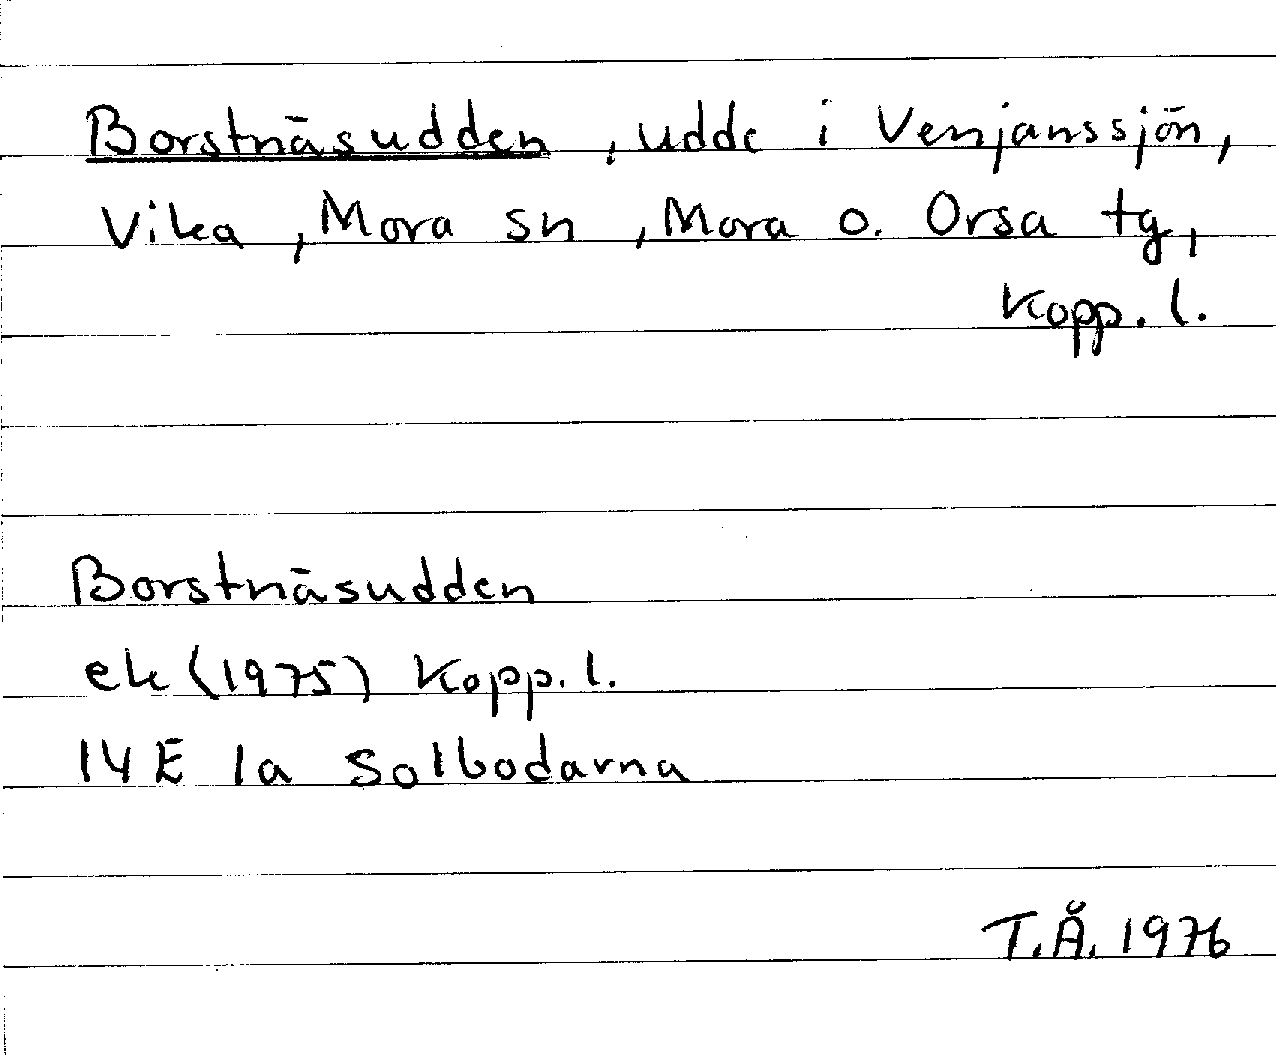 Borstnäsudden, udde i Venjanssjön,
Vika, Mora sn, Mora o. Orsa tg,
Kopp. l.
Borstnäsudden
ek (1975) Kopp. l.
14 E 1a Solbodarna
T.Å. 1976